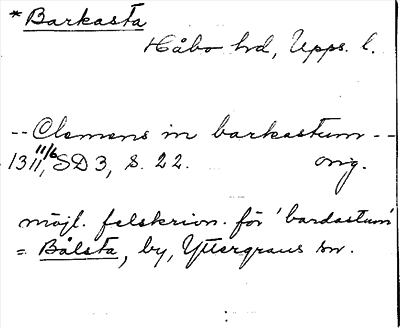 *Barkasta
Håbo hd, Upps. l.
-- Clemens in barkastum --
1311 11/6, SD 3, S. 22. orig.
möjl. felskrivn. för 'bardastum'
= Bålsta, by, Yttergrans sn.